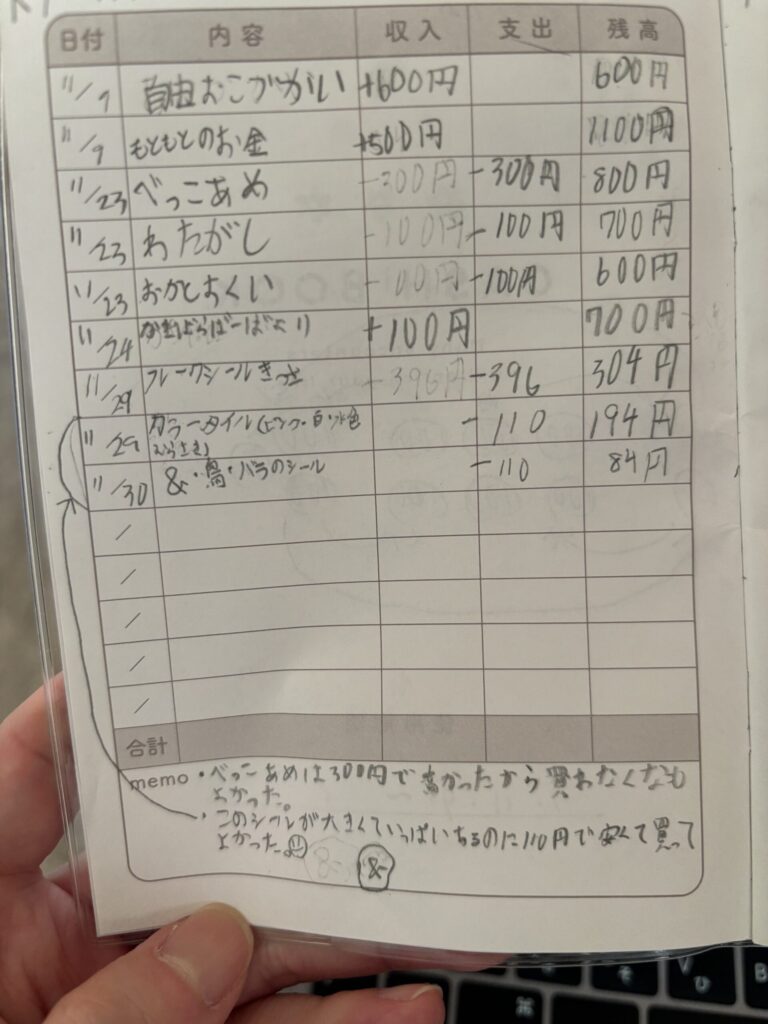 日付 内容 収入 支出 残高
11/7 自由おこづかい +600円 600円
11/9 もともとのお金 +500円 1100円
11/23 べっこあめ -300円 -300円 800円
11/23 わたがし -100円 -100円 700円
11/23 おかとおくい -100円 -100円 600円
11/24 ばーばより +100円 700円
11/29 フレークシール -396円 -396 304円
11/29 カラータイル(ピンク・白・水色 -110 194円
むらさき)
11/30 &・鳥・バラのシール -110 84円
/
/
/
/
/
合計
memo ・べっこあめは300円で高かったから買わなくても
よかった。
・このシールが大きくていっぱいあるのに110円で安くて買って
よかった。
&